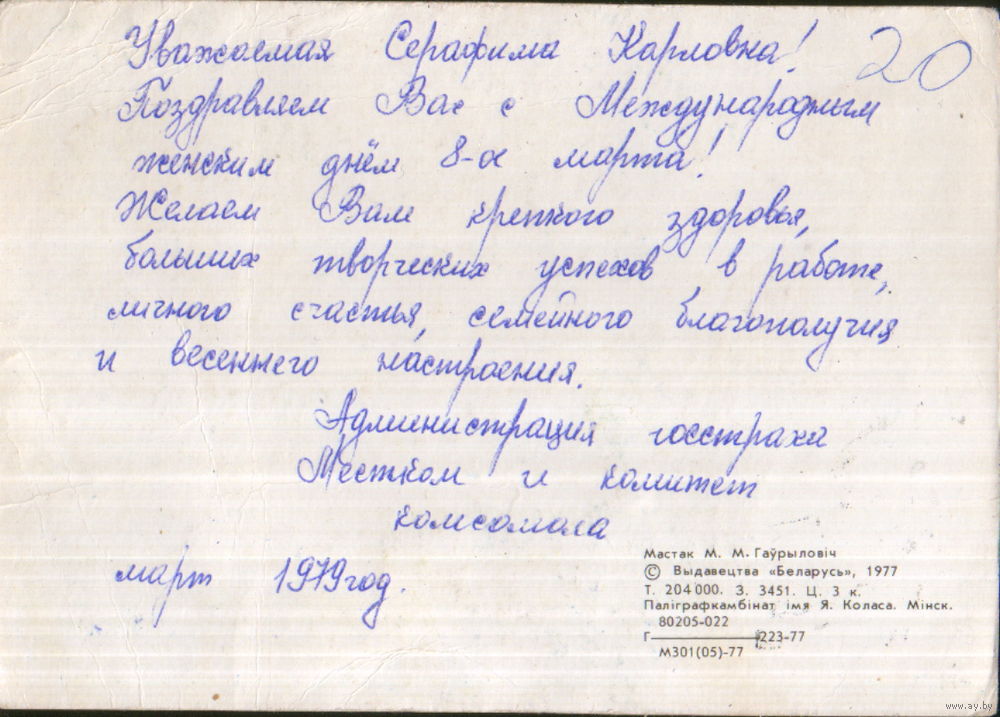 Уважаемая Серафима Карловна!
20
Поздравляем Вас с Международным
женским днём 8-ое марта!
Желаем Вам крепкого здоровья,
больших творческих успехов в работе,
личного счастья, семейного благополучия
и весеннего настроения.
Администрация госстраха
Местком и комитет
комсомола
март 1979 год.
Мастак М. М. Гаўрыловіч
© Выдавецтва «Беларусь», 1977
Т. 204 000. З. 3451. Ц. 3 к.
Паліграфкамбінат імя Я. Коласа. Мінск.
80205-022
Г————223-77
М301(05)-77
www.ay.by